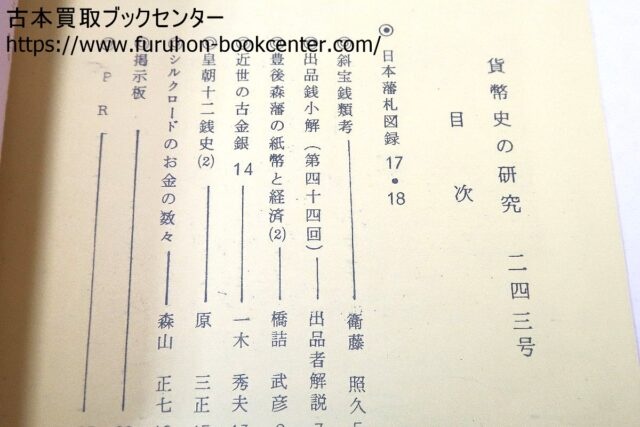 古本買取ブックセンター
https://www.furuhon-bookcenter.com/
貨幣史の研究 二四三号
目次
◉ 日本藩札図録 17・18
斜宝銭類考 衛藤 照久
出品銭小解(第四十四回) 出品者解説
豊後森藩の紙幣と経済(2) 橋詰 武彦
近世の古金銀 14 一木 秀夫
皇朝十二銭史(2) 原 三正
シルクロードのお金の数々 森山 正七
掲示板
P R